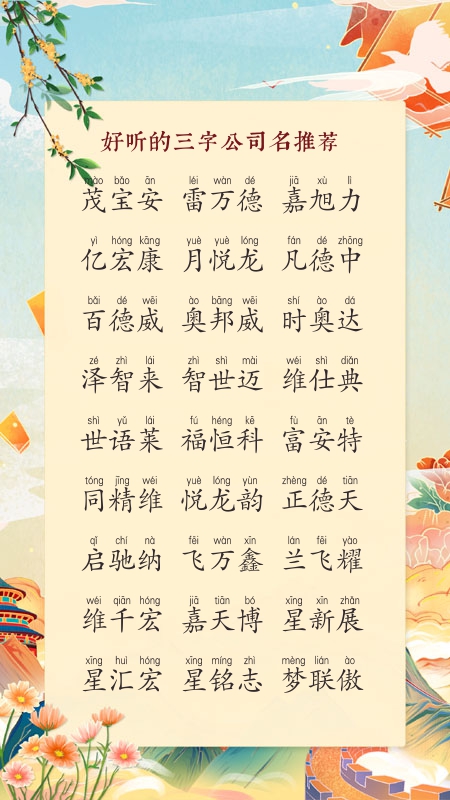 好听的三字公司名推荐
mào bǎo ān léi wàn dé jiā xù lì
茂宝安 雷万德 嘉旭力
yì hóng kāng yuè yuè lóng fán dé zhōng
亿宏康 月悦龙 凡德中
bǎi dé wēi ào bāng wēi shí ào dá
百德威 奥邦威 时奥达
zé zhì lái zhì shì mài wéi shì diǎn
泽智来 智世迈 维仕典
shì yǔ lái fú héng kē fù ān tè
世语莱 福恒科 富安特
tóng jīng wéi yuè lóng yùn zhèng dé tiān
同精维 悦龙韵 正德天
qǐ chí nà fēi wàn xīn lán fēi yào
启驰纳 飞万鑫 兰飞耀
wéi qiān hóng jiā tiān bó xīng xīn zhǎn
维千宏 嘉天博 星新展
xīng huì hóng xīng míng zhì mèng lián ào
星汇宏 星铭志 梦联傲